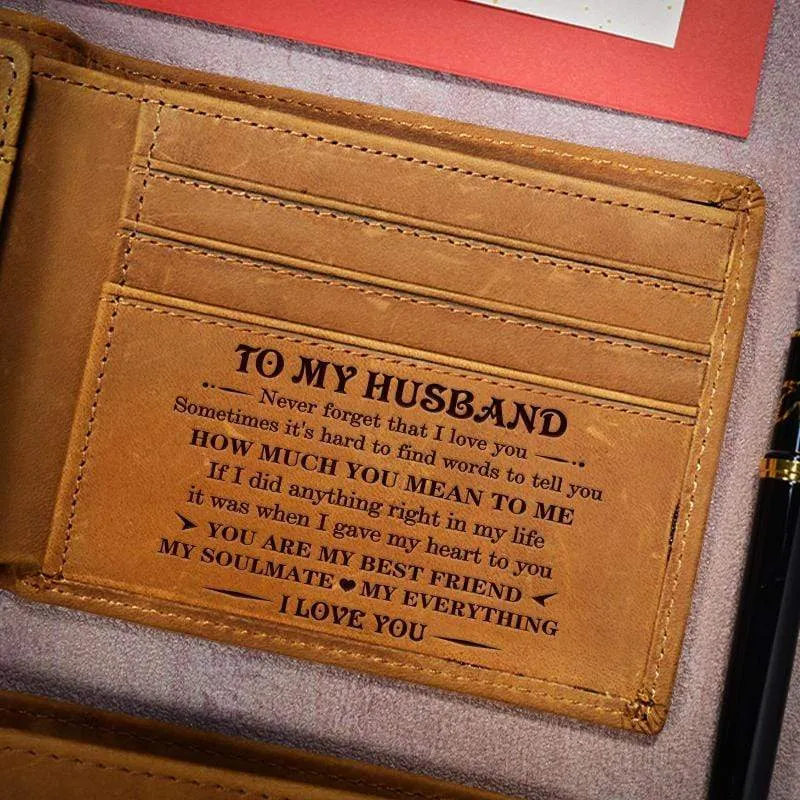 TO MY HUSBAND
Never forget that I love you
Sometimes it's hard to find words to tell you
HOW MUCH YOU MEAN TO ME
If I did anything right in my life
it was when I gave my heart to you
YOU ARE MY BEST FRIEND
MY SOULMATE ♥ MY EVERYTHING
I LOVE YOU